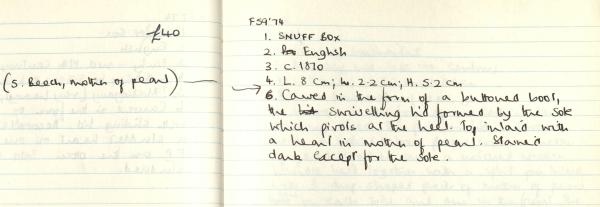 £40
(5. Beech, mother of pearl)
F59'74
1. SNUFF BOX
2. English
3. C. 1870
4. L. 8 cm; W. 2.2 cm; H. 5.2 cm
6. Carved in the form of a buttoned boot,
the swivelling lid formed by the sole
which pivots at the heel. Top inlaid with
a heart in mother of pearl. Stained
dark except for the sole.